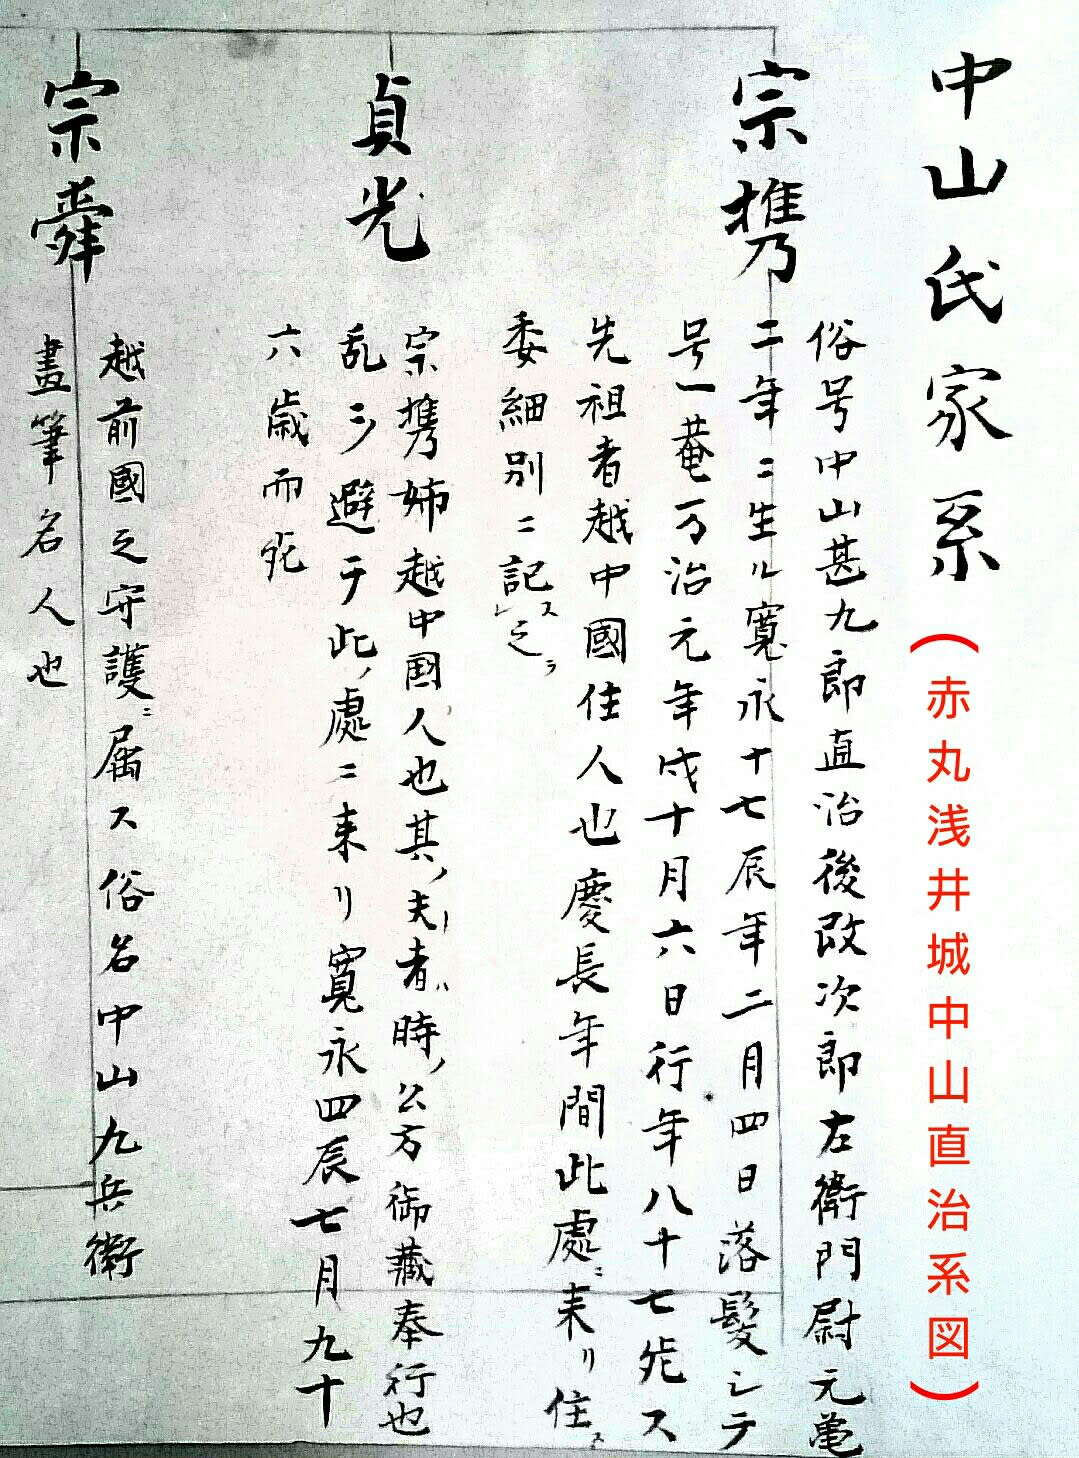 中山氏家系(赤丸浅井城中山直治系図)
宗携
俗号中山甚九郎直治後改次郎左衛門尉元亀
二年ニ生ル寛永十七辰年二月四日落髪シテ
号一菴万治元年戌十月六日行年八十七死ス
先祖者越中國住人也慶長年間此處ニ来リ住ス
委細別ニ記ス之ヲ
貞光
宗携姉越中国人也其ノ夫者ハ時ノ公方御藏奉行也
乱ヲ避テ此ノ處ニ来リ寛永四辰七月九十
六歳而死
宗舜
越前國之守護ニ屈ス俗名中山九兵衛
畫筆名人也